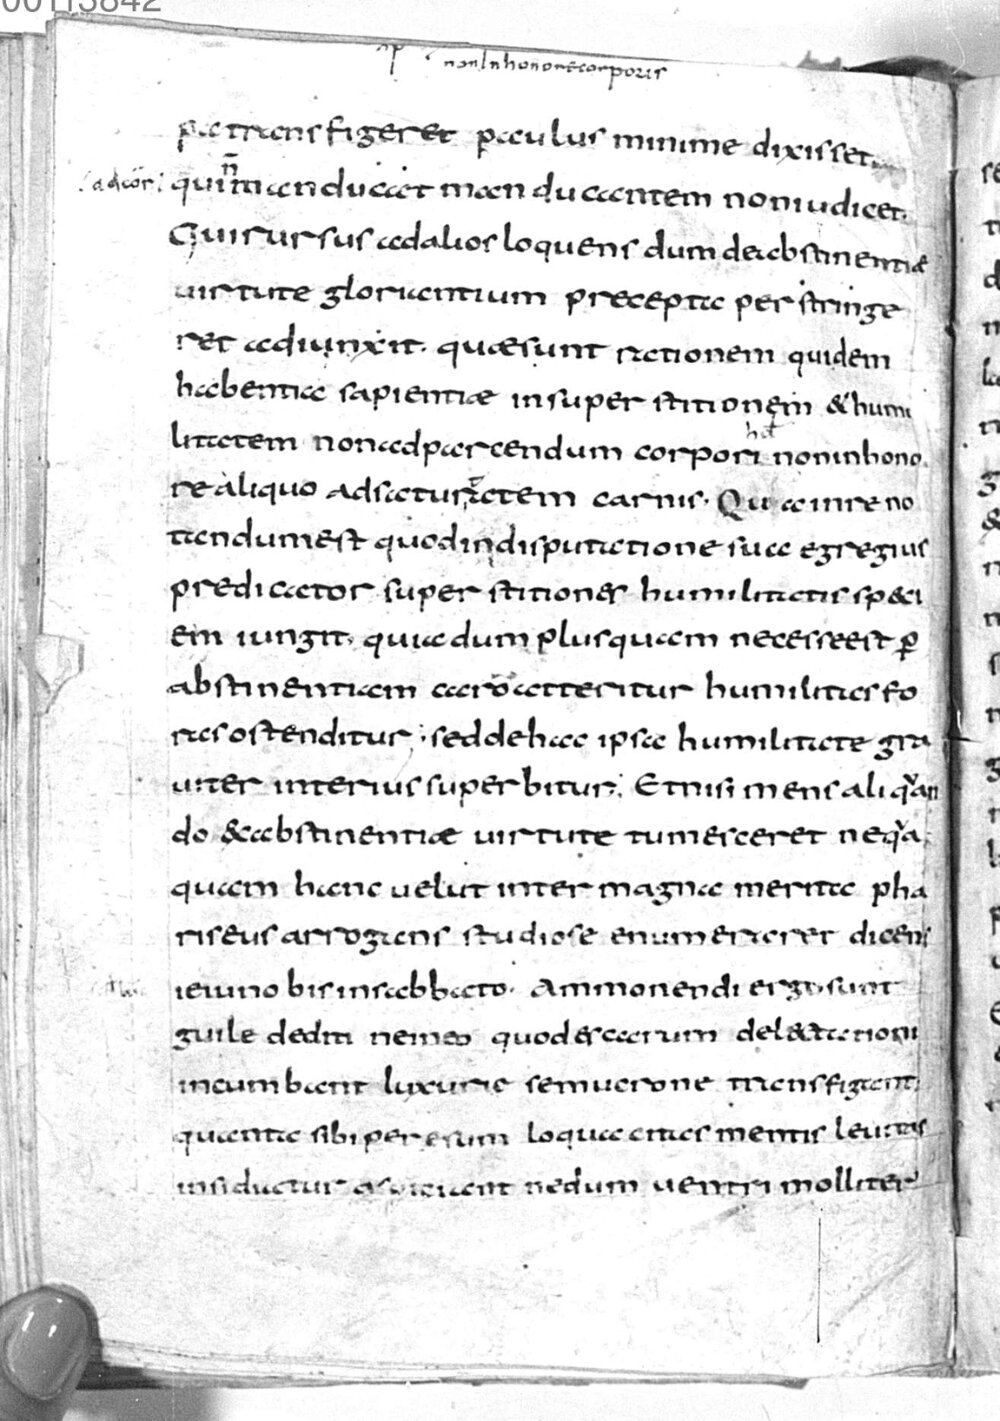 00113842
non In honore corporis
pa transfigeret paulus minime dixisset
ad cor
qui n̄ manducat manducantem non iudicet.
Qui rursus ad alios loquens dum de abstinentiæ
uirtute gloriantium precepta perstringe
ret adiunxit. quæ sunt rationem quidem
habentia sapientiæ in superstitionem & humi
litatem non ad parcendum corpori non in hono
re aliquo ad saturitatem carnis. Qua in re no
tandum est quod in disputatione sua egregius
predicator superstitiones humilitatis speci
em iungit. quia dum plusquam necesse est ꝑ
abstinentiam caro atteritur humilitas fo
ras ostenditur; sed de hac ipsa humilitate gra
uiter interius superbitur; Et nisi mens aliquan
do & abstinentiæ uirtute tumesceret neqa
quam hanc uelut inter magna merita pha
riseus arrogans studiose enumeraret dicens
ieiuno bis in sabbato. Ammonendi ergo sunt
guile dediti ne in eo quod escarum delectationi
incumbant luxurie se mucrone transfigant
quanta sibi per esum loquacitas mentis leuitas
insidiatur aspiciant ne dum uentri molliter